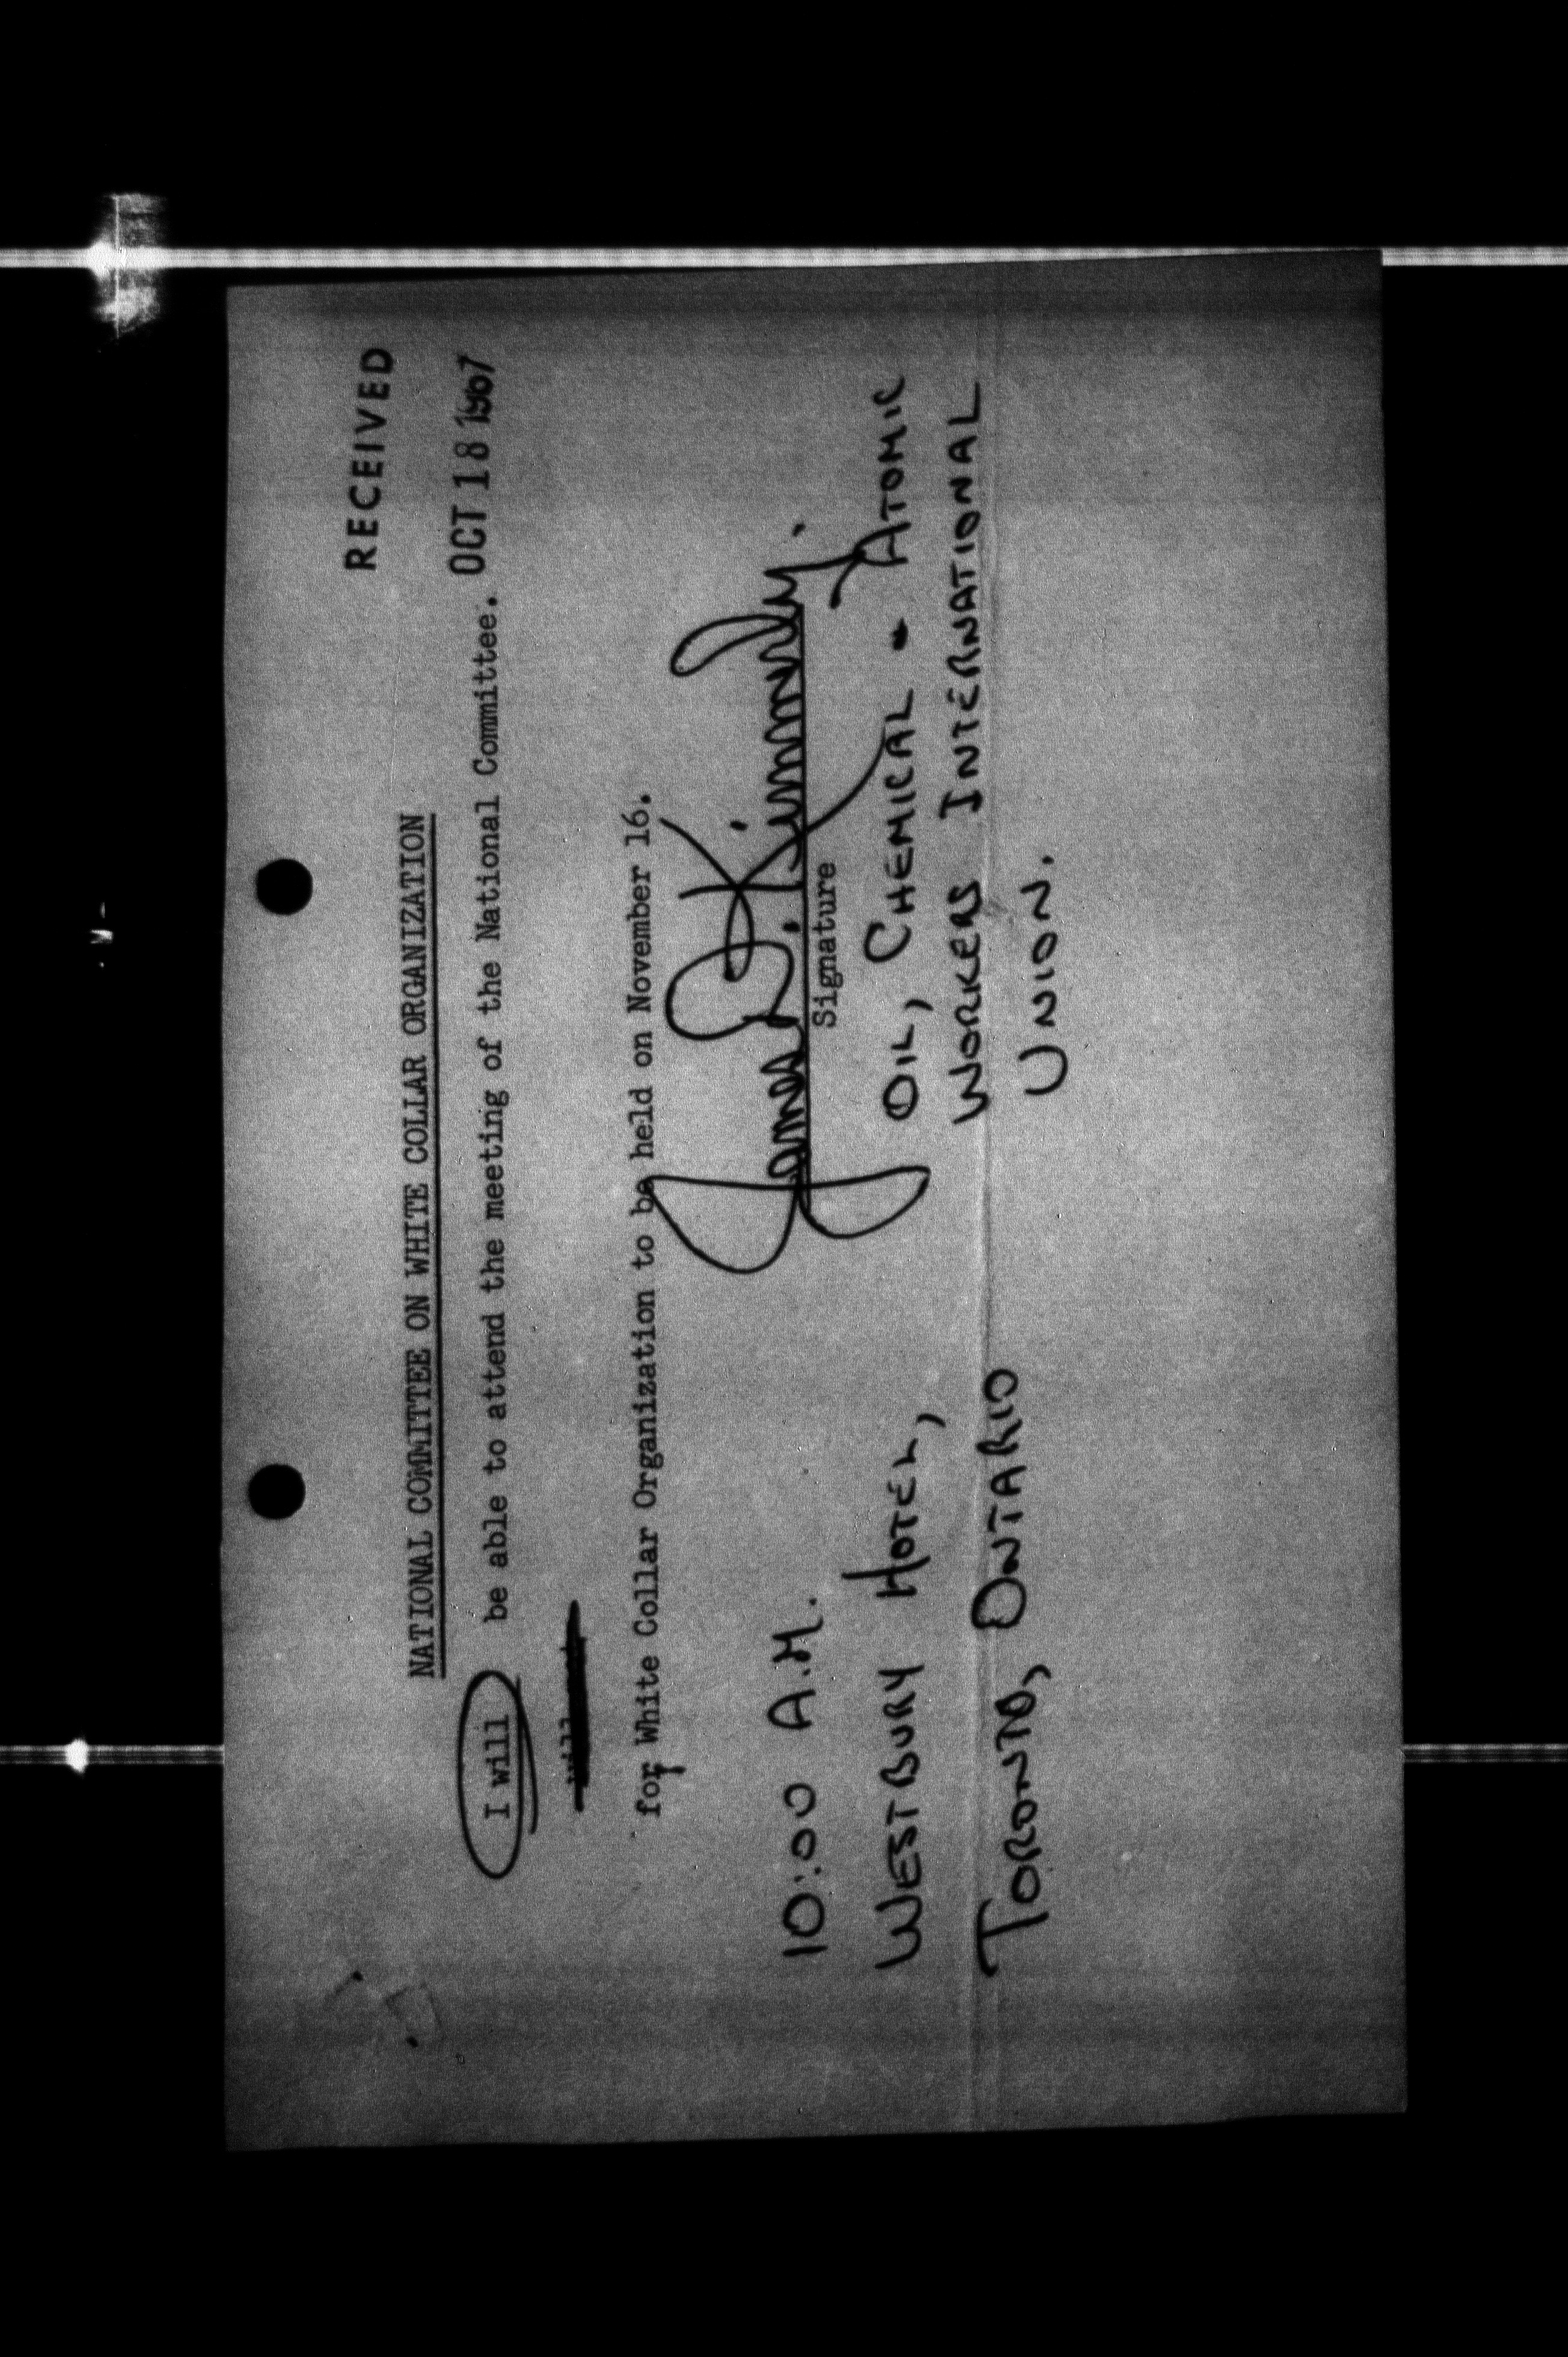 RECEIVED
NATIONAL COMMITTEE ON WHITE COLLAR ORGANIZATION
OCT 18 1967
I will be able to attend the meeting of the National Committee.
for White Collar Organization to be held on November 16.
James D. Kimmerly.
Signature
10:00 A.M.
OIL, CHEMICAL - ATOMIC
WESTBURY HOTEL,
WORKERS INTERNATIONAL
TORONTO, ONTARIO
UNION.